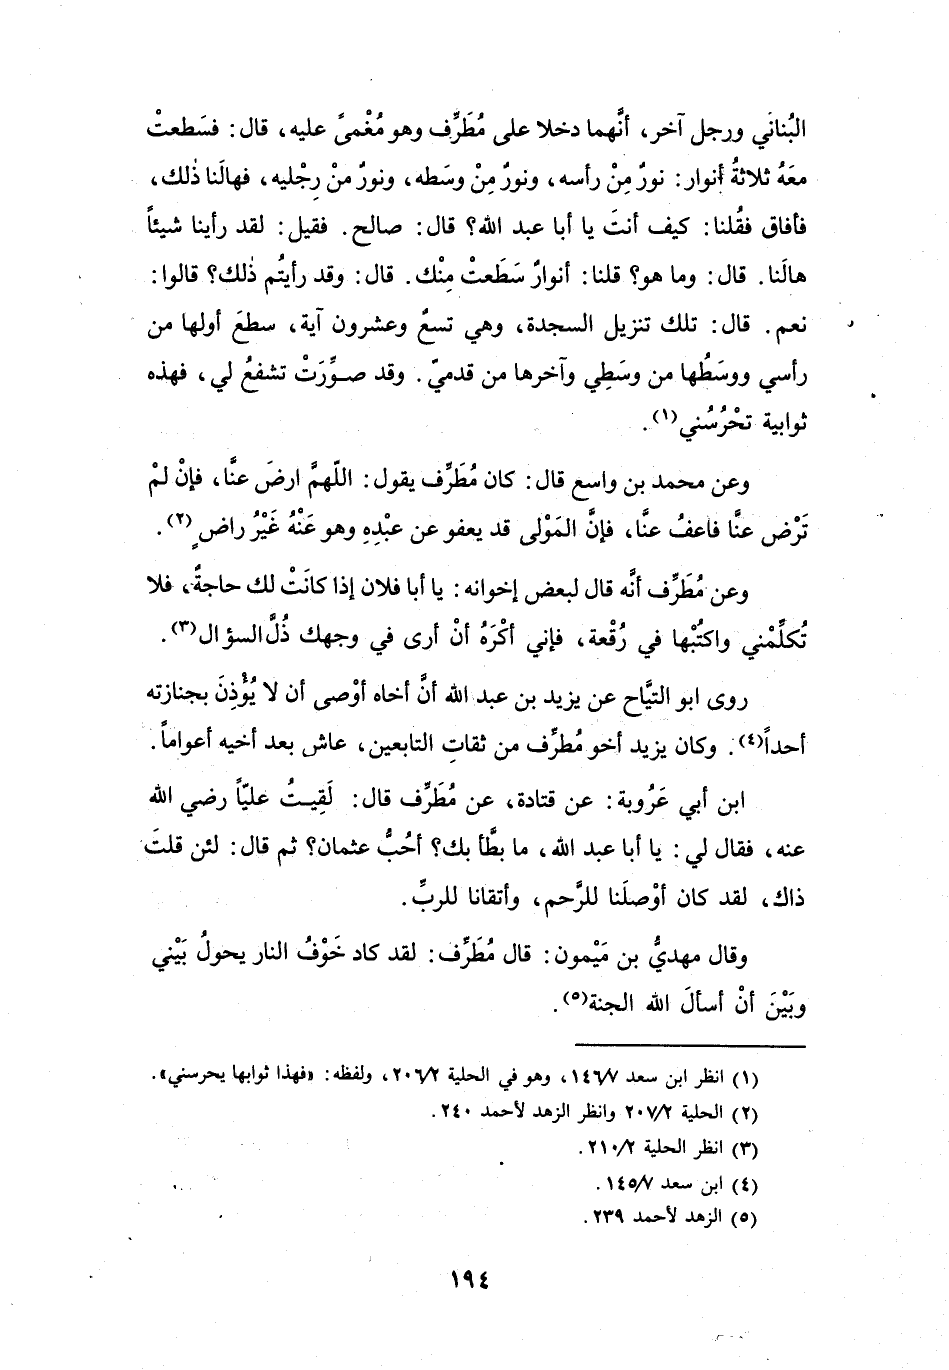 البُناني ورجل آخر، أنَّهما دخلا على مُطَرِّف وهو مُغْمىً عليه، قال: فسَطعتْ
معَهُ ثلاثةُ أنوار: نورٌ مِنْ رأسه، ونورٌ مِنْ وسَطه، ونورٌ منْ رِجْليه، فهالَنا ذٰلك،
فأفاق فقُلنا: كيف أنتَ يا أبا عبد الله؟ قال: صالح. فقيل: لقد رأينا شيئاً
هالَنا. قال: وما هو؟ قلنا: أنوارٌ سَطَعتْ مِنْك. قال: وقد رأيتُم ذٰلك؟ قالوا:
نعم. قال: تلك تنزيل السجدة، وهي تسعٌ وعشرون آية، سطعَ أولها من
رأسي ووسَطُها من وسَطِي وآخرها من قدميّ. وقد صوِّرَتْ تشفعُ لي، فهذه
ثوابية تحْرُسُني(١).
وعن محمد بن واسع قال: كان مُطَرِّف يقول: اللّهمَّ ارضَ عنَّا، فإنْ لمْ
تَرْض عنَّا فاعفُ عنَّا، فإنَّ المَوْلى قد يعفو عن عبْدِهِ وهو عَنْهُ غَيْرُ راضٍ(٢).
وعن مُطَرِّف أنَّه قال لبعض إخوانه: يا أبا فلان إذا كانَتْ لك حاجةٌ، فلا
تُكلِّمْني واكتُبْها في رُقْعة، فإني أكْرَهُ أنْ أرى في وجهك ذُلَّ السؤال(٣).
روى ابو التيَّاح عن يزيد بن عبد الله أنَّ أخاه أوْصى أن لا يُؤْذِنَ بجنازته
أحداً(٤). وكان يزيد أخو مُطرِّف من ثقاتِ التابعين، عاش بعد أخيه أعواماً.
ابن أبي عَرُوبة: عن قتادة، عن مُطَرِّف قال: لَقِيتُ عليّاً رضي الله
عنه، فقال لي: يا أبا عبد الله، ما بطَّأ بك؟ أحُبُّ عثمان؟ ثم قال: لئن قلتَ
ذاك، لقد كان أوْصلَنا للرَّحم، وأتقانا للربِّ.
وقال مهديُّ بن مَيْمون: قال مُطَرِّف: لقد كاد خَوْفُ النار يحولُ بَيْني
وبَيْنَ أنْ أسألَ الله الجنة(٥).
(١) انظر ابن سعد ١٤٦/٧، وهو في الحلية ٢٠٦/٢، ولفظه: «فهذا ثوابها يحرسني».
(٢) الحلية ٢٠٧/٢ وانظر الزهد لأحمد ٢٤٠.
(٣) انظر الحلية ٢١٠/٢.
(٤) ابن سعد ١٤٥/٧.
(٥) الزهد لأحمد ٢٣٩.
١٩٤